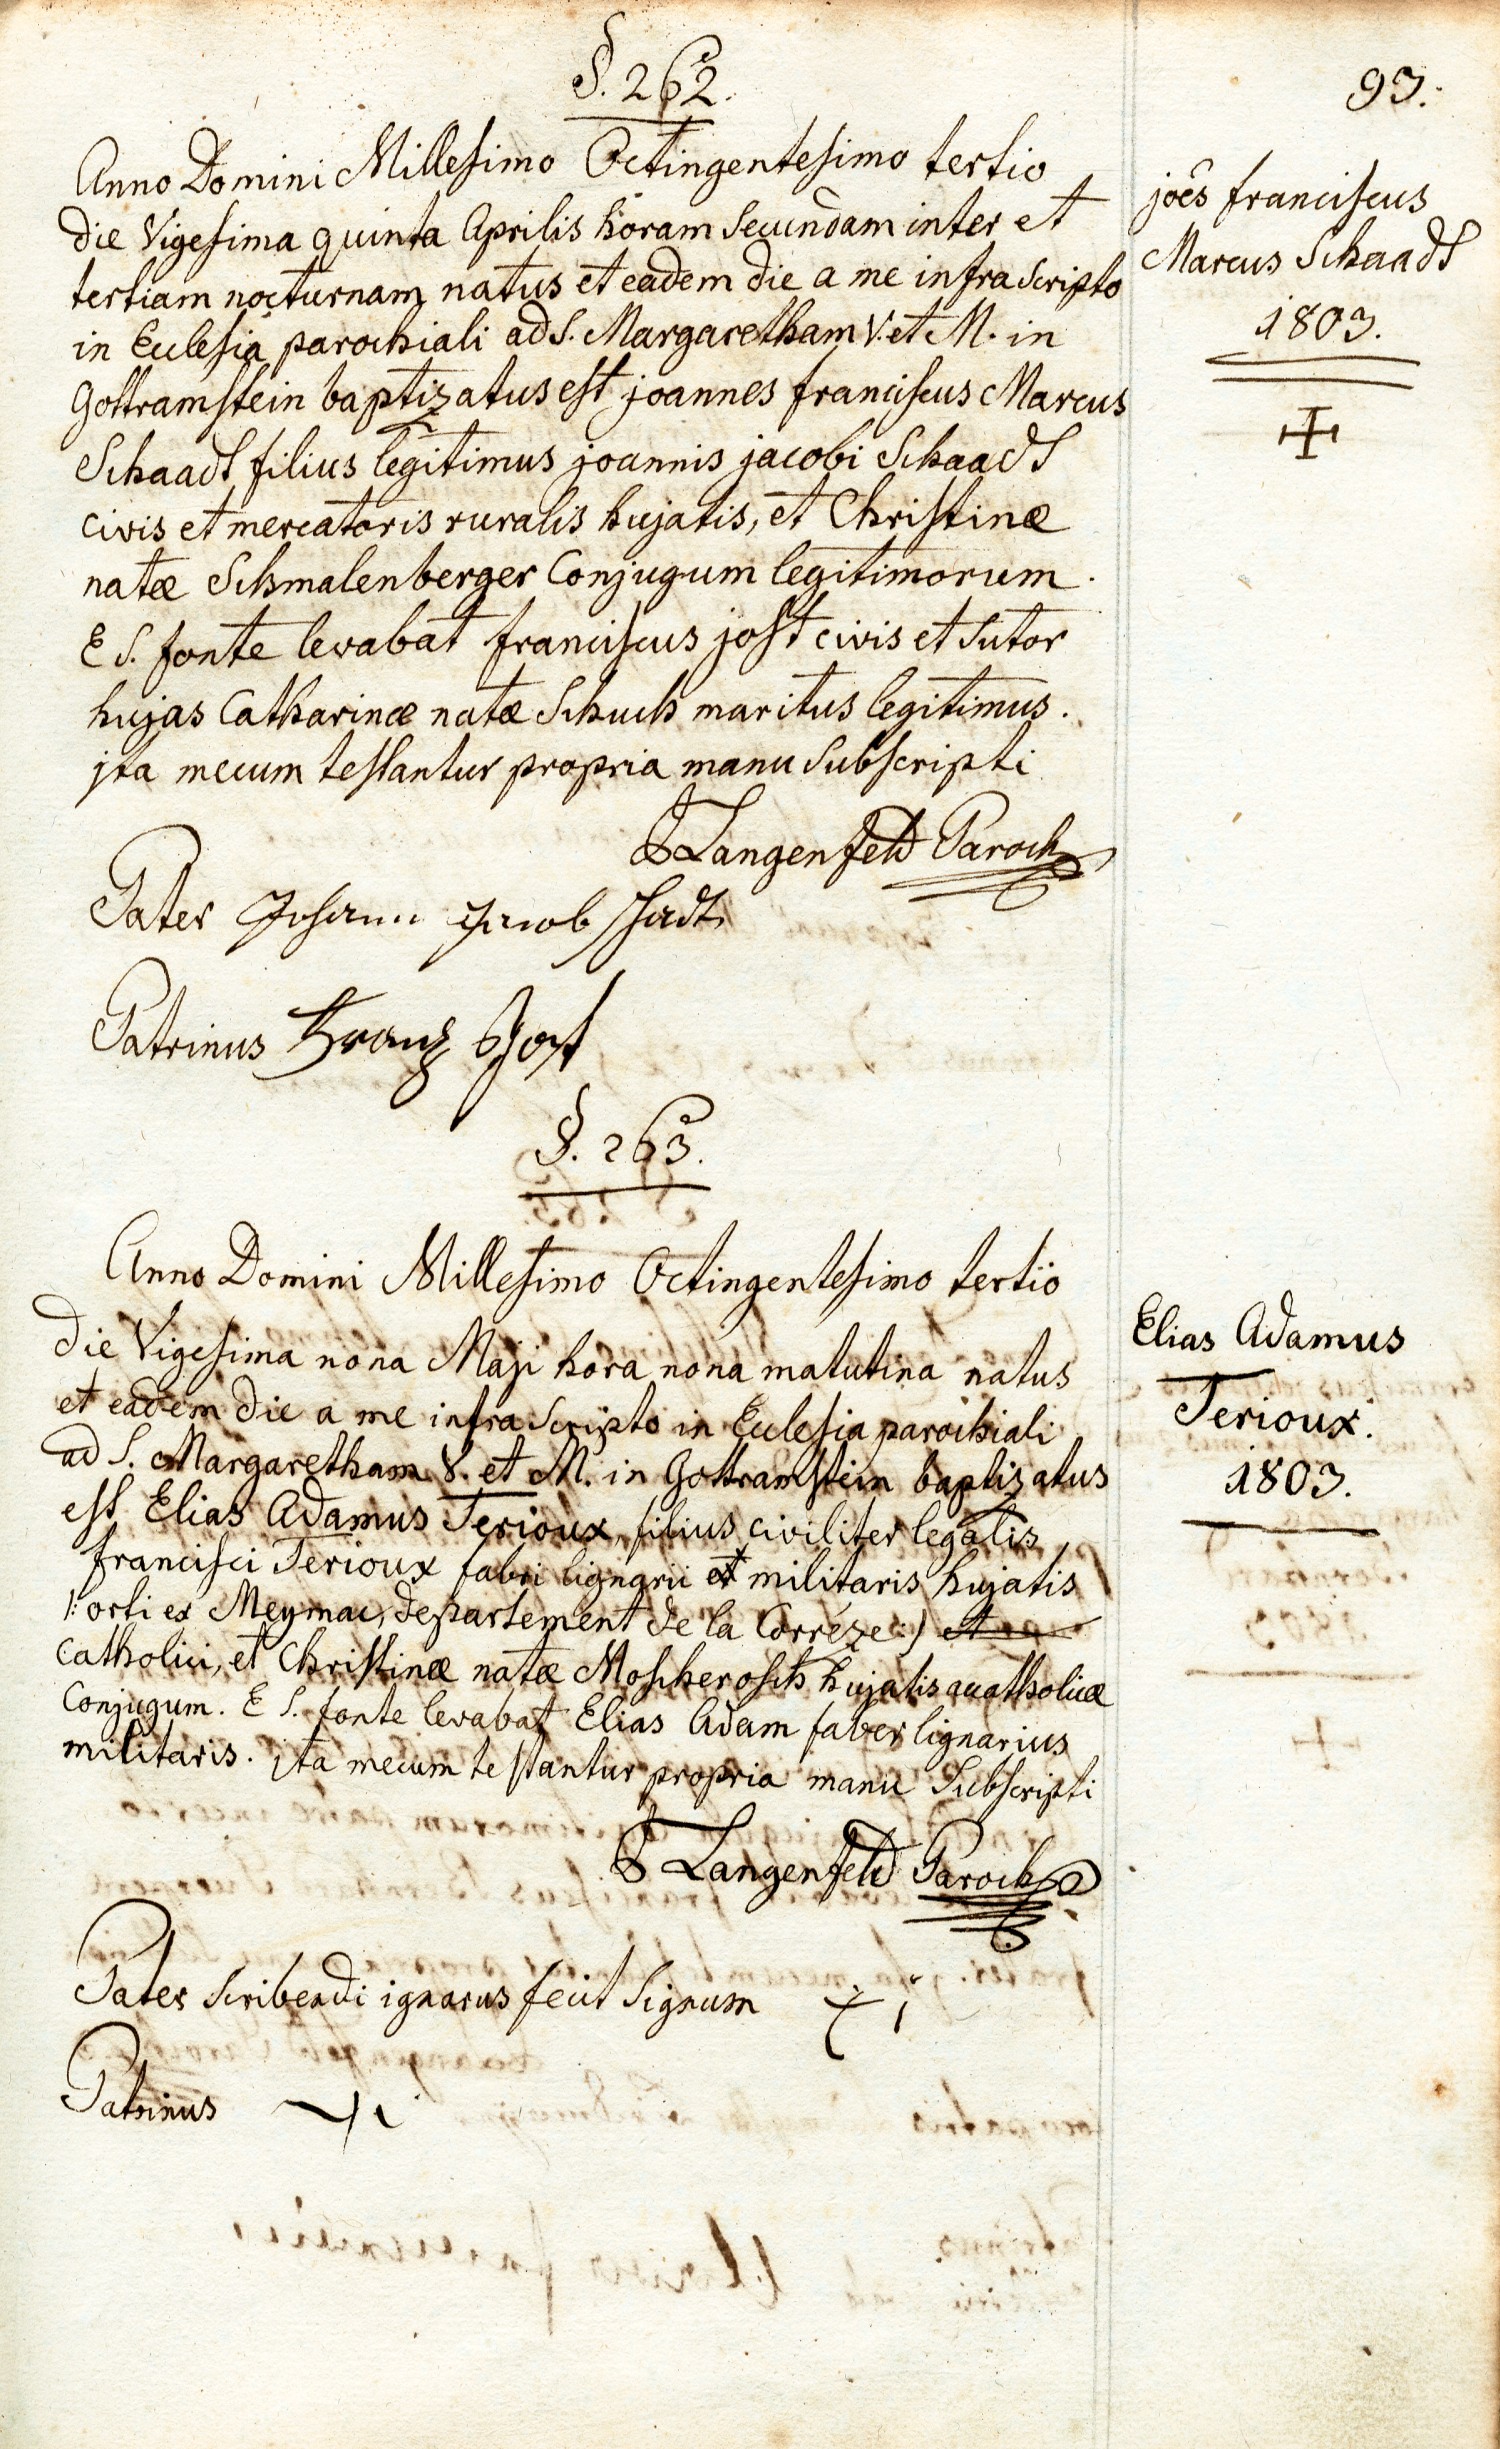 93.
§. 262.
Anno Domini Millesimo Octingentesimo tertio
die Vigesima quinta Aprilis horam secundam inter et
tertiam nocturnam natus et eadem die a me infra scripto
in Ecclesia parochiali ad S. Margaretham V. et M. in
Gottramstein baptizatus est joannes franciscus Marcus
Schaadt filius legitimus joannis jacobi Schaadt
civis et mercatoris ruralis hujatis, et Christinæ
natæ Schmalenberger Conjugum legitimorum.
E S. fonte levabat franciscus jost civis et sutor
hujas Catharinæ natæ Schuch maritus legitimus.
jta mecum testantur propria manu subscripti
Langenfeld Paroch
Pater Johann Jacob Schadt
Patrinus Franz Jost
joês franciscus
Marcus Schaadt
1803.
§. 263.
Anno Domini Millesimo Octingentesimo tertio
die Vigesima nona Maji hora nona matutina natus
et eadem die a me infra scripto in Ecclesia parochiali
ad S. Margaretham V. et M. in Gottramstein baptizatus
est Elias Adamus Terioux, filius civiliter legalis
francisci Terioux fabri lignarii et militaris hujatis
/: orti ex Meymac, departement de la Corréze :/ et
catholici, et Christinæ natæ Moscherosch hujatis acatholicæ
Conjugum. E S. fonte levabat Elias Adam faber lignarius
militaris. jta mecum testantur propria manu subscripti
Langenfeld Paroch
Pater scribendi ignarus fecit signum
Patrinus
Elias Adamus
Terioux.
1803.